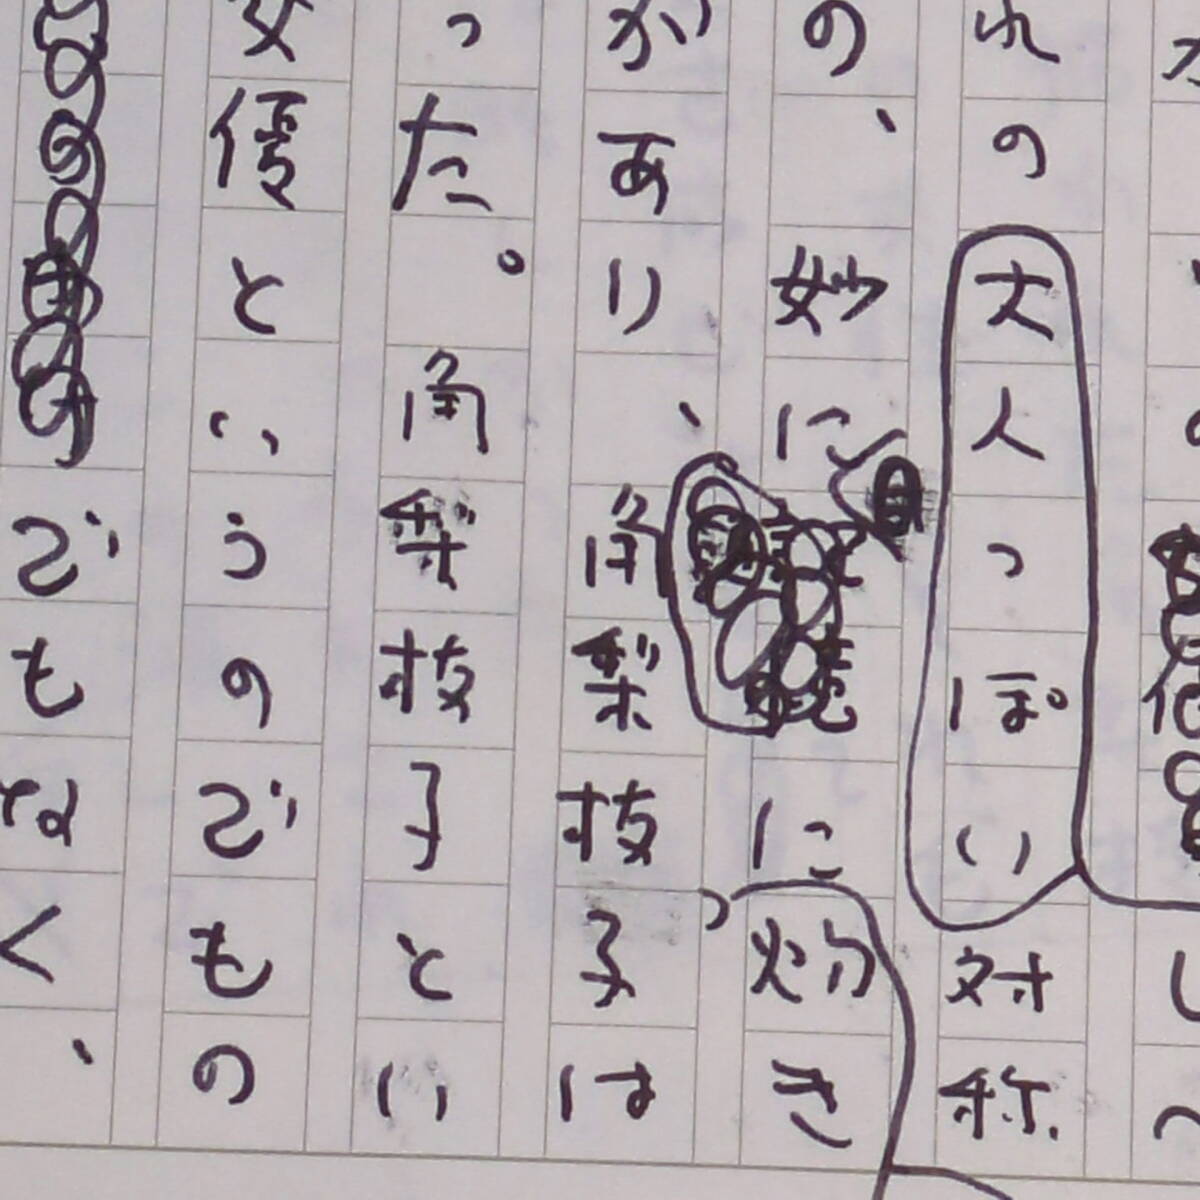 し
れの大人っぽい対称
の、妙に に灼き
があり、角梨枝子は
った。角梨枝子とい
女優というのでもの
でもなく、